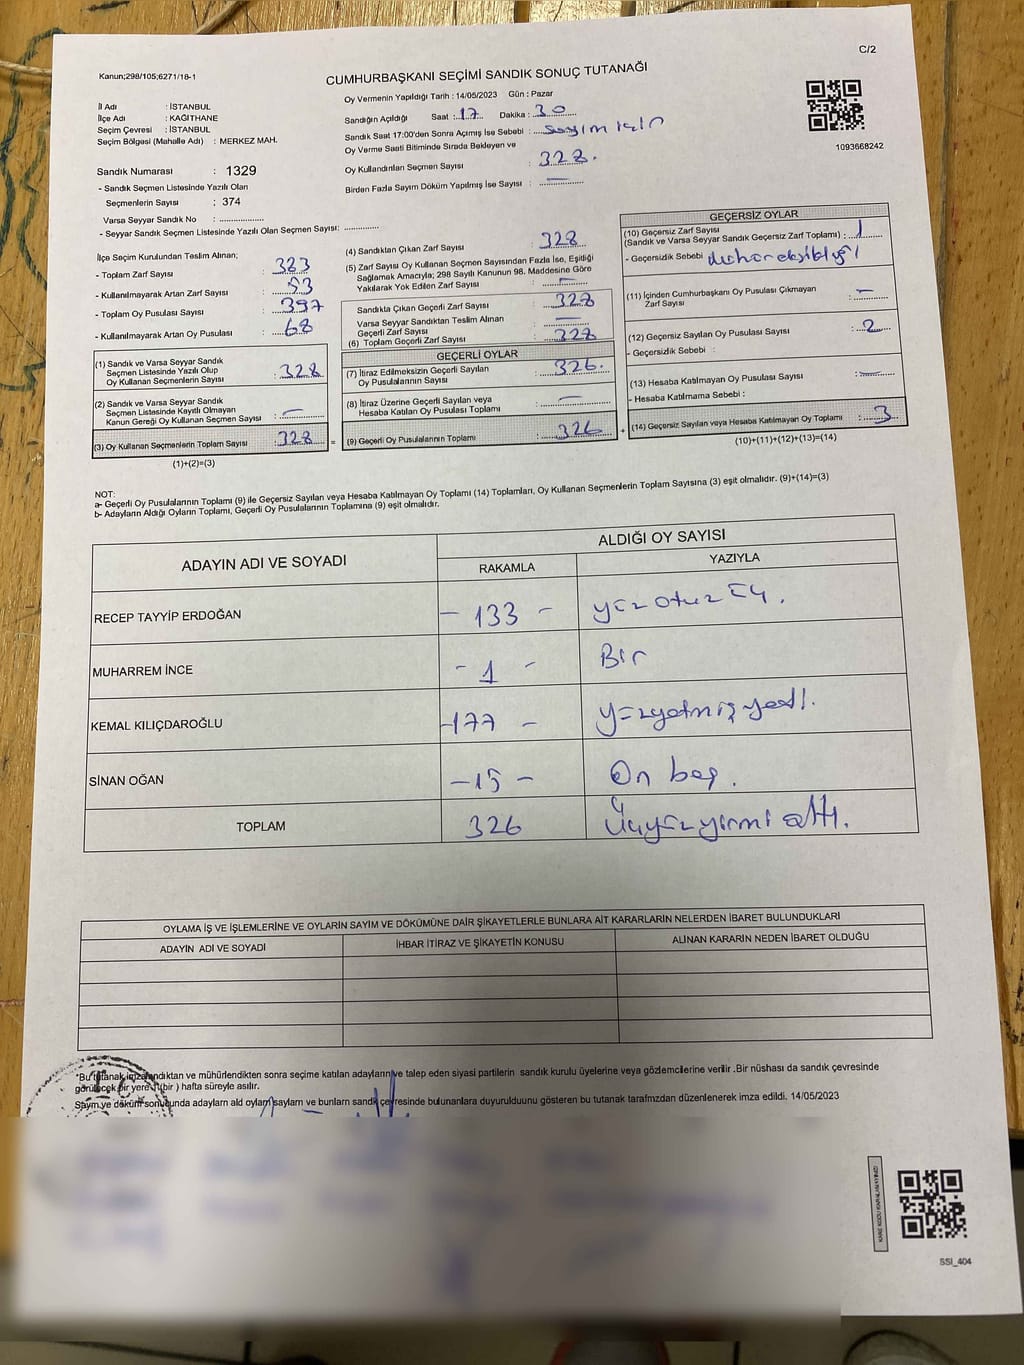 C/2
Kanun;298/105;6271/18-1
CUMHURBAŞKANI SEÇİMİ SANDIK SONUÇ TUTANAĞI
İl Adı : İSTANBUL
İlçe Adı : KAĞITHANE
Seçim Çevresi : İSTANBUL
Seçim Bölgesi (Mahalle Adı) : MERKEZ MAH.
Oy Vermenin Yapıldığı Tarih : 14/05/2023 Gün : Pazar
Sandığın Açıldığı Saat : 17 Dakika : 30
Sandık Saat 17:00'den Sonra Açımış İse Sebebi : Sayım için
Oy Verme Saati Bitiminde Sırada Bekleyen ve
Oy Kullandırılan Seçmen Sayısı : 328.
Birden Fazla Sayım Döküm Yapılmış İse Sayısı : —
1093668242
Sandık Numarası : 1329
- Sandık Seçmen Listesinde Yazılı Olan
Seçmenlerin Sayısı : 374
Varsa Seyyar Sandık No :
- Seyyar Sandık Seçmen Listesinde Yazılı Olan Seçmen Sayısı:
İlçe Seçim Kurulundan Teslim Alınan;
- Toplam Zarf Sayısı : 383
- Kullanılmayarak Artan Zarf Sayısı : 53
- Toplam Oy Pusulası Sayısı : 397
- Kullanılmayarak Artan Oy Pusulası : 68
(1) Sandık ve Varsa Seyyar Sandık
Seçmen Listesinde Yazılı Olup
Oy Kullanan Seçmenlerin Sayısı : 328
(2) Sandık ve Varsa Seyyar Sandık
Seçmen Listesinde Kayıtlı Olmayan
Kanun Gereği Oy Kullanan Seçmen Sayısı : —
(3) Oy Kullanan Seçmenlerin Toplam Sayısı : 328 =
(1)+(2)=(3)
(4) Sandıktan Çıkan Zarf Sayısı : 328
(5) Zarf Sayısı Oy Kullanan Seçmen Sayısından Fazla İse, Eşitliği
Sağlamak Amacıyla; 298 Sayılı Kanunun 98. Maddesine Göre
Yakılarak Yok Edilen Zarf Sayısı : —
Sandıkta Çıkan Geçerli Zarf Sayısı : 328
Varsa Seyyar Sandıktan Teslim Alınan
Geçerli Zarf Sayısı : —
(6) Toplam Geçerli Zarf Sayısı : 328
GEÇERLİ OYLAR
(7) İtiraz Edilmeksizin Geçerli Sayılan
Oy Pusulalarının Sayısı : 326.
(8) İtiraz Üzerine Geçerli Sayılan veya
Hesaba Katılan Oy Pusulası Toplamı : —
(9) Geçerli Oy Pusulalarının Toplamı : 326 +
GEÇERSİZ OYLAR
(10) Geçersiz Zarf Sayısı
(Sandık ve Varsa Seyyar Sandık Geçersiz Zarf Toplamı) : 1
- Geçersizlik Sebebi
(11) İçinden Cumhurbaşkanı Oy Pusulası Çıkmayan
Zarf Sayısı : —
(12) Geçersiz Sayılan Oy Pusulası Sayısı : 2
- Geçersizlik Sebebi :
(13) Hesaba Katılmayan Oy Pusulası Sayısı : —
- Hesaba Katılmama Sebebi :
(14) Geçersiz Sayılan veya Hesaba Katılmayan Oy Toplamı : 3
(10)+(11)+(12)+(13)=(14)
NOT:
a- Geçerli Oy Pusulalarının Toplamı (9) ile Geçersiz Sayılan veya Hesaba Katılmayan Oy Toplamı (14) Toplamları, Oy Kullanan Seçmenlerin Toplam Sayısına (3) eşit olmalıdır. (9)+(14)=(3)
b- Adayların Aldığı Oyların Toplamı, Geçerli Oy Pusulalarının Toplamına (9) eşit olmalıdır.
ADAYIN ADI VE SOYADI ALDIĞI OY SAYISI
RAKAMLA YAZIYLA
RECEP TAYYİP ERDOĞAN - 133 - yüz otuz üç.
MUHARREM İNCE - 1 - Bir
KEMAL KILIÇDAROĞLU -177 - yüzyetmiş yedi.
SİNAN OĞAN -15- On beş.
TOPLAM 326 Üçyüzyirmi altı.
OYLAMA İŞ VE İŞLEMLERİNE VE OYLARIN SAYIM VE DÖKÜMÜNE DAİR ŞİKAYETLERLE BUNLARA AİT KARARLARIN NELERDEN İBARET BULUNDUKLARI
ADAYIN ADI VE SOYADI İHBAR İTİRAZ VE ŞİKAYETİN KONUSU ALINAN KARARIN NEDEN İBARET OLDUĞU
*Bu tutanak imzalandıktan ve mühürlendikten sonra seçime katılan adayların ve talep eden siyasi partilerin sandık kurulu üyelerine veya gözlemcilerine verilir .Bir nüshası da sandık çevresinde
görülecek bir yere 1(bir ) hafta süreyle asılır.
Sayım ve döküm sonucunda adayların ald oyların sayıları ve bunların sandık çevresinde bulunanlara duyurulduunu gösteren bu tutanak tarafmzdan düzenlenerek imza edildi. 14/05/2023
KARE KODU KARALAMAYINIZ!
SSI_404